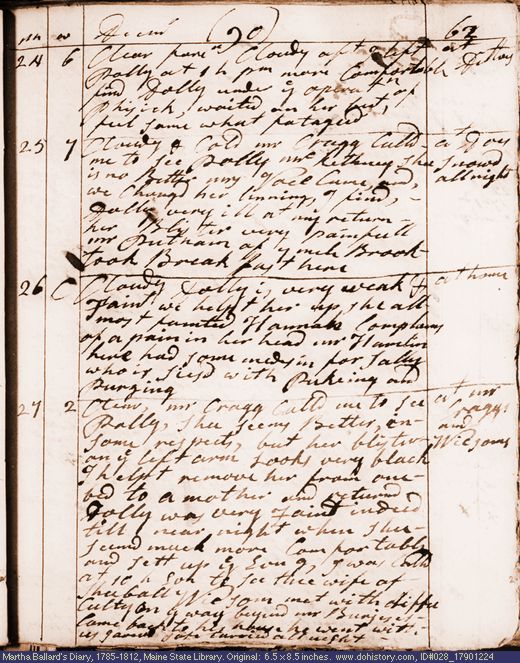 Decm^r (90) 62
24 6 Clear fore^n Cloudy aft^n at
Polly at 1 h pm more Comfortable
find Dolly under y^e opperat^n of
Phisick, waited on her first,
feel some what fataged
25 7 Cloudy & Cold mr Cragg Calld at
me to see Polly mrs Kithny she Snowd
is no Better my Came and, all night
we Changd her linning, I find,
Dolly very ill at my return
her Blister very painfull
mr Putnam of ye mile Brook
took Break fast here
26 C Cloudy Dolly is very weak & at home
Faint we helpt her up, she all
most fainted Hannah Complains
of a pain in her head mr Hamlin
here had some medsin for Sally
who is siesd with Pukeing and
Purging
27 2 Clear, mr Cragg Calld me to see at mr
Polly, she seems Better, in Craggs
some respects, but her blister and
on y^e left arm Looks very black
I helpt remove her from one
bed to a nother and returnd
Dolly was very Faint indeed
till near night when shee
seemd much more Comfortable
and sett up & sung, I was Calld
at 10 h to see thee wife of
met with diffi
culty on y^e way beyond mr
Came back to his house he went with
us tarried all night
Martha Ballard's Diary, 1785-1812, Maine State Library. Original: 6.5 x 8.5 inches. www.dohistory.com, ID#028_17901224